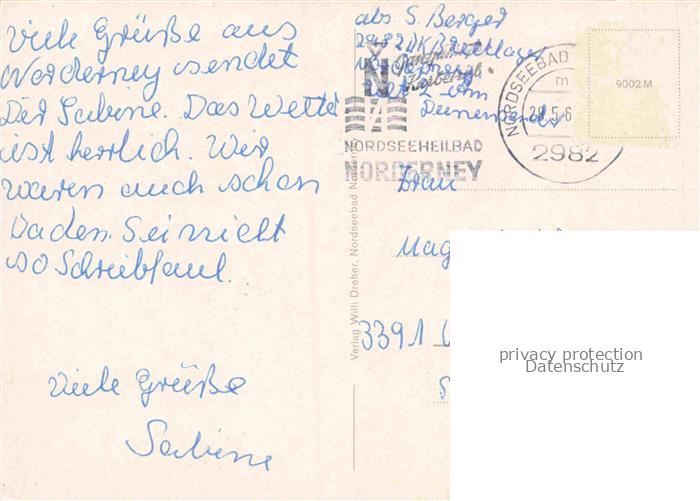 Viele Grüße aus
Norderney sendet
Dir Sabine. Das Wetter
ist herrlich. Wir
waren auch schon
baden. Sei nicht
so schreibfaul.
Viele Grüße
Sabine
abs. S. Berger
2982
NORDSEEHEILBAD
NORDERNEY
NORDSEEBAD
m
28.5.6
2982
9002 M
Frau
Mag
3391
Verlag Willi Dreher, Nordseebad Norderney
privacy protection
Datenschutz